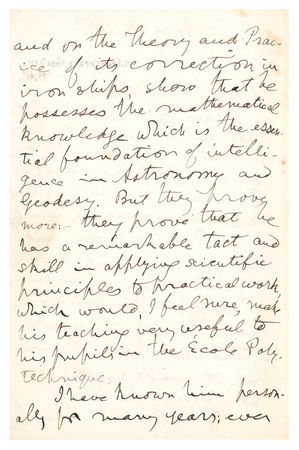 and on the Theory and Prac-
tice of its correction in
iron ships, show that he
possesses the mathematical
knowledge which is the essen-
tial foundation of intelli-
gence in Astronomy and
Geodesy. But they prove
more:- they prove that he
has a remarkable tact and
skill in applying scientific
principles to practical work,
which would, I feel sure, make
his teaching very useful to
his pupils in the École Poly-
technique.
I have known him person-
ally for many years; ever